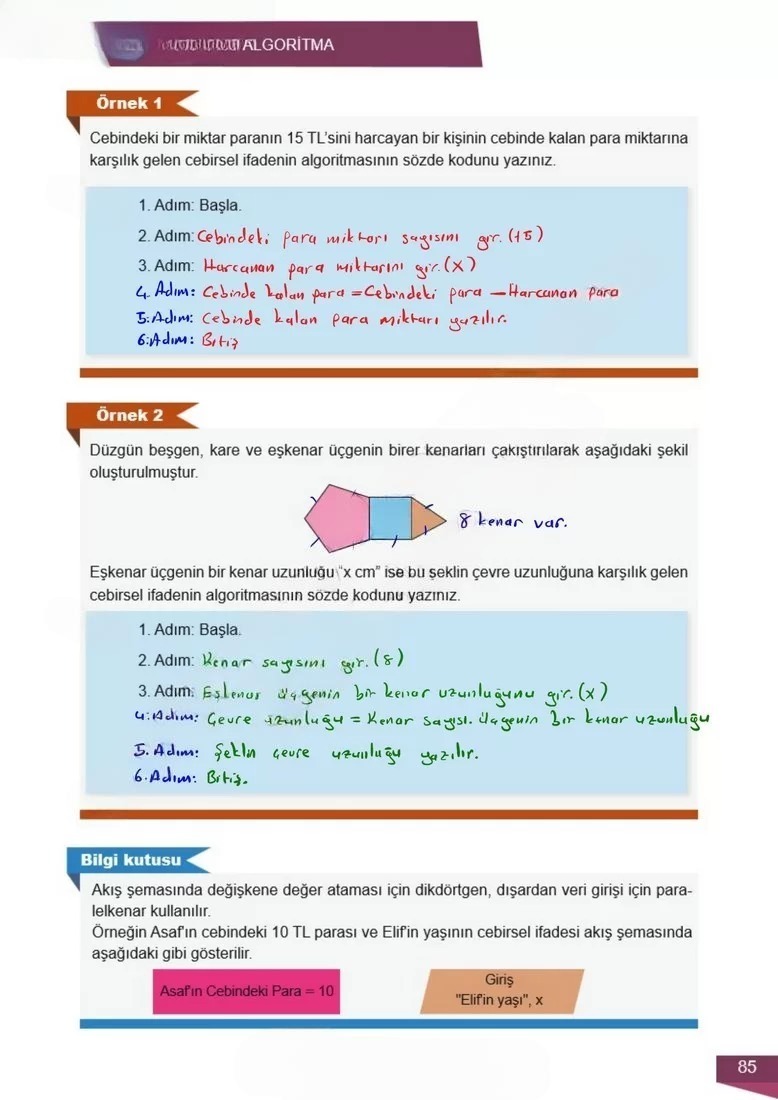 ALGORİTMA
Örnek 1
Cebindeki bir miktar paranın 15 TL'sini harcayan bir kişinin cebinde kalan para miktarına
karşılık gelen cebirsel ifadenin algoritmasının sözde kodunu yazınız.
1. Adım: Başla.
2. Adım: Cebindeki para miktarı sayısını gir. (15)
3. Adım: Harcanan para miktarını gir. (x)
4. Adım: Cebinde kalan para = Cebindeki para - Harcanan para
5. Adım: Cebinde kalan para miktarı yazılır.
6. Adım: Bitiş
Örnek 2
Düzgün beşgen, kare ve eşkenar üçgenin birer kenarları çakıştırılarak aşağıdaki şekil
oluşturulmuştur.
8 kenar var.
Eşkenar üçgenin bir kenar uzunluğu "x cm" ise bu şeklin çevre uzunluğuna karşılık gelen
cebirsel ifadenin algoritmasının sözde kodunu yazınız.
1. Adım: Başla.
2. Adım: Kenar sayısını gir. (8)
3. Adım: Eşkenar üçgenin bir kenar uzunluğunu gir. (x)
4. Adım: Çevre uzunluğu = Kenar sayısı. üçgenin bir kenar uzunluğu
5. Adım: Şeklin çevre uzunluğu yazılır.
6. Adım: Bitiş.
Bilgi kutusu
Akış şemasında değişkene değer ataması için dikdörtgen, dışardan veri girişi için para-
lelkenar kullanılır.
Örneğin Asaf'ın cebindeki 10 TL parası ve Elif'in yaşının cebirsel ifadesi akış şemasında
aşağıdaki gibi gösterilir.
Asaf'ın Cebindeki Para = 10
Giriş
"Elif'in yaşı", x
85